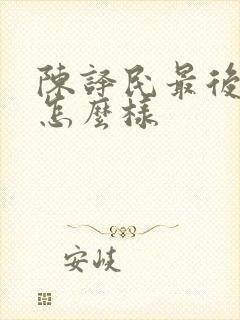 陳譯民最後
怎麼樣
安岐